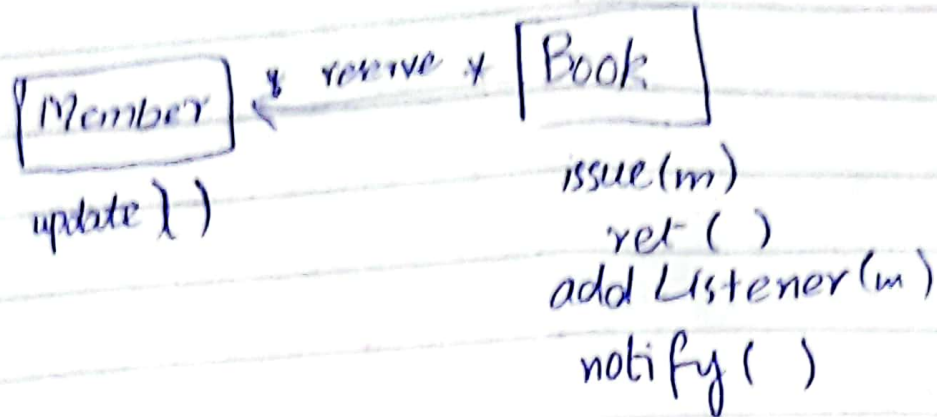 Member * reserve * Book
update()
issue(m)
ret ( )
add Listener(m)
notify ( )